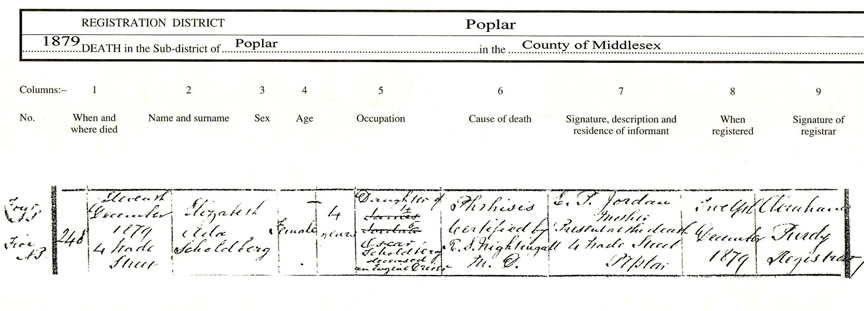 REGISTRATION DISTRICT Poplar
1879 DEATH in the Sub-district of Poplar in the County of Middlesex
Columns:– 1 2 3 4 5 6 7 8 9
No. When and where died Name and surname Sex Age Occupation Cause of death Signature, description and residence of informant When registered Signature of registrar
248
Eleventh
December
1879
4 Wade
Street
Elizabeth
Ada
Scholdberg
Female
4
years
Daughter of
Oscar
Scholdberg
deceased
an Engine Driver
Phthisis
Certified by
E. S. Nightingall
M. D.
E. T. Jordan
Mother
Present at the death
4 Wade Street
Poplar
Twelfth
December
1879
Abraham
Purdy
Registrar